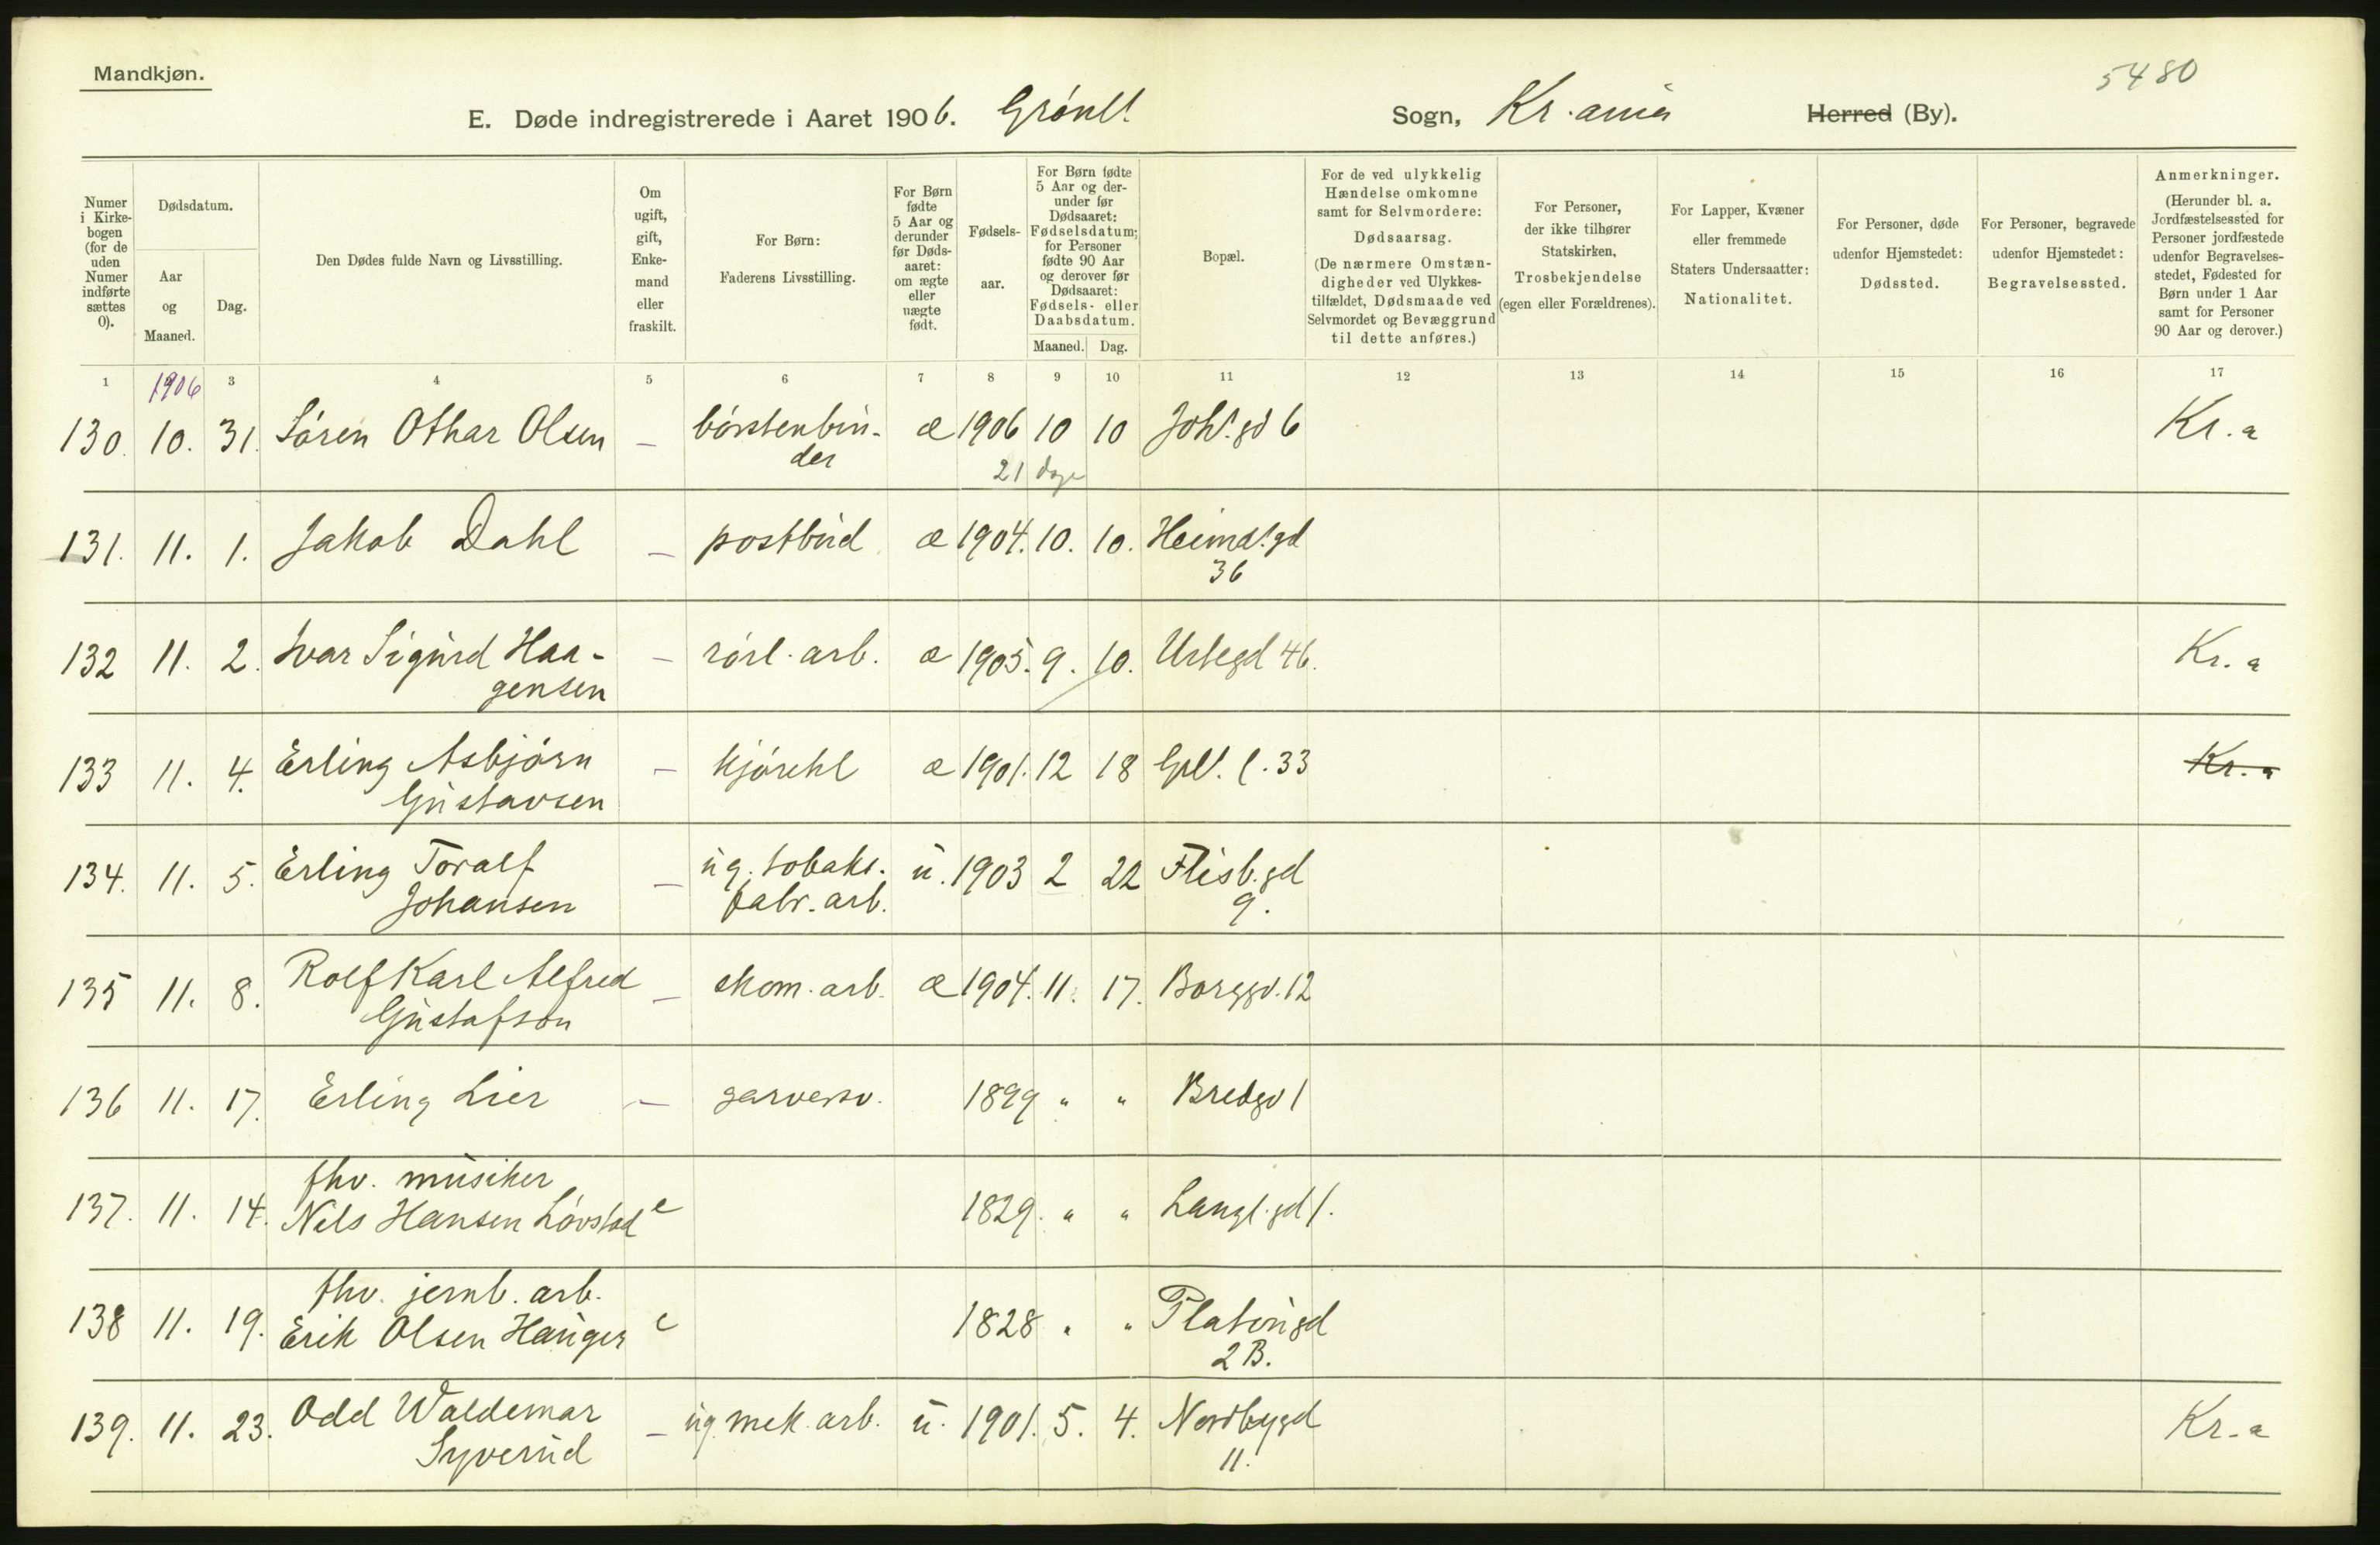 5480
Mandkjøn.
E. Døde indregistrerede i Aaret 1906. Grønl. Sogn, Kr.ania Herred (By).
Numer i Kirkebogen (for de uden Numer indførte sættes 0).
Dødsdatum.
Aar og Maaned.
Dag.
Den Dødes fulde Navn og Livsstilling.
Om ugift, gift, Enkemand eller fraskilt.
For Børn: Faderens Livsstilling.
For Børn fødte 5 Aar og derunder før Dødsaaret: om ægte eller uægte født.
Fødselsaar.
For Børn fødte 5 Aar og derunder før Dødsaaret: Fødselsdatum; for Personer fødte 90 Aar og derover før Dødsaaret: Fødsels- eller Daabsdatum.
Maaned. Dag.
Bopæl.
For de ved ulykkelig Hændelse omkomne samt for Selvmordere: Dødsaarsag. (De nærmere Omstændigheder ved Ulykkestilfældet, Dødsmaade ved Selvmordet og Bevæggrund til dette anføres.)
For Personer, der ikke tilhører Statskirken, Trosbekjendelse (egen eller Forældrenes).
For Lapper, Kvæner eller fremmede Staters Undersaatter: Nationalitet.
For Personer, døde udenfor Hjemstedet: Dødssted.
For Personer, begravede udenfor Hjemstedet: Begravelsessted.
Anmerkninger. (Herunder bl. a. Jordfæstelsessted for Personer jordfæstede udenfor Begravelsesstedet, Fødested for Børn under 1 Aar samt for Personer 90 Aar og derover.)
1 1906 3 4 5 6 7 8 9 10 11 12 13 14 15 16 17
130. 10. 31. Søren Othar Olsen — børstenbin- æ 1906 10 10 Joh!.gd 6 Kr.a
der 21 dage
131. 11. 1. Jakob Dahl — postbud æ 1904. 10. 10. Heimd!gd
36
132 11. 2. Ivar Sigurd Haa- — rørl. arb. æ 1905. 9. 10. Urtegd 46. Kr.a
gensen
133 11. 4. Erling Asbjørn — kjørekl æ 1901. 12 18 Grl!. l. 33 Kr.a
Gustavsen
134. 11. 5. Erling Toralf — ug. tobaks. u. 1903 2 22 Flisb.gd
Johansen fabr. arb. 9.
135 11. 8. Rolf Karl Alfred — skom. arb. æ 1904. 11. 17. Borggd. 12
Gustafson
136 11. 17. Erling Lier — garversv. 1899 " " Bredgd 1
fhv. musiker
137. 11. 14. Nils Hansen Løvstad e 1829. " " Langl.gd 1.
fhv. jernb. arb.
138 11. 19. Erik Olsen Hauger e 1828 " " Platougd
2 B.
139. 11. 23. Odd Waldemar — ug. mek. arb. u. 1901. 5. 4. Nordbygd Kr.a
Syverud 11.